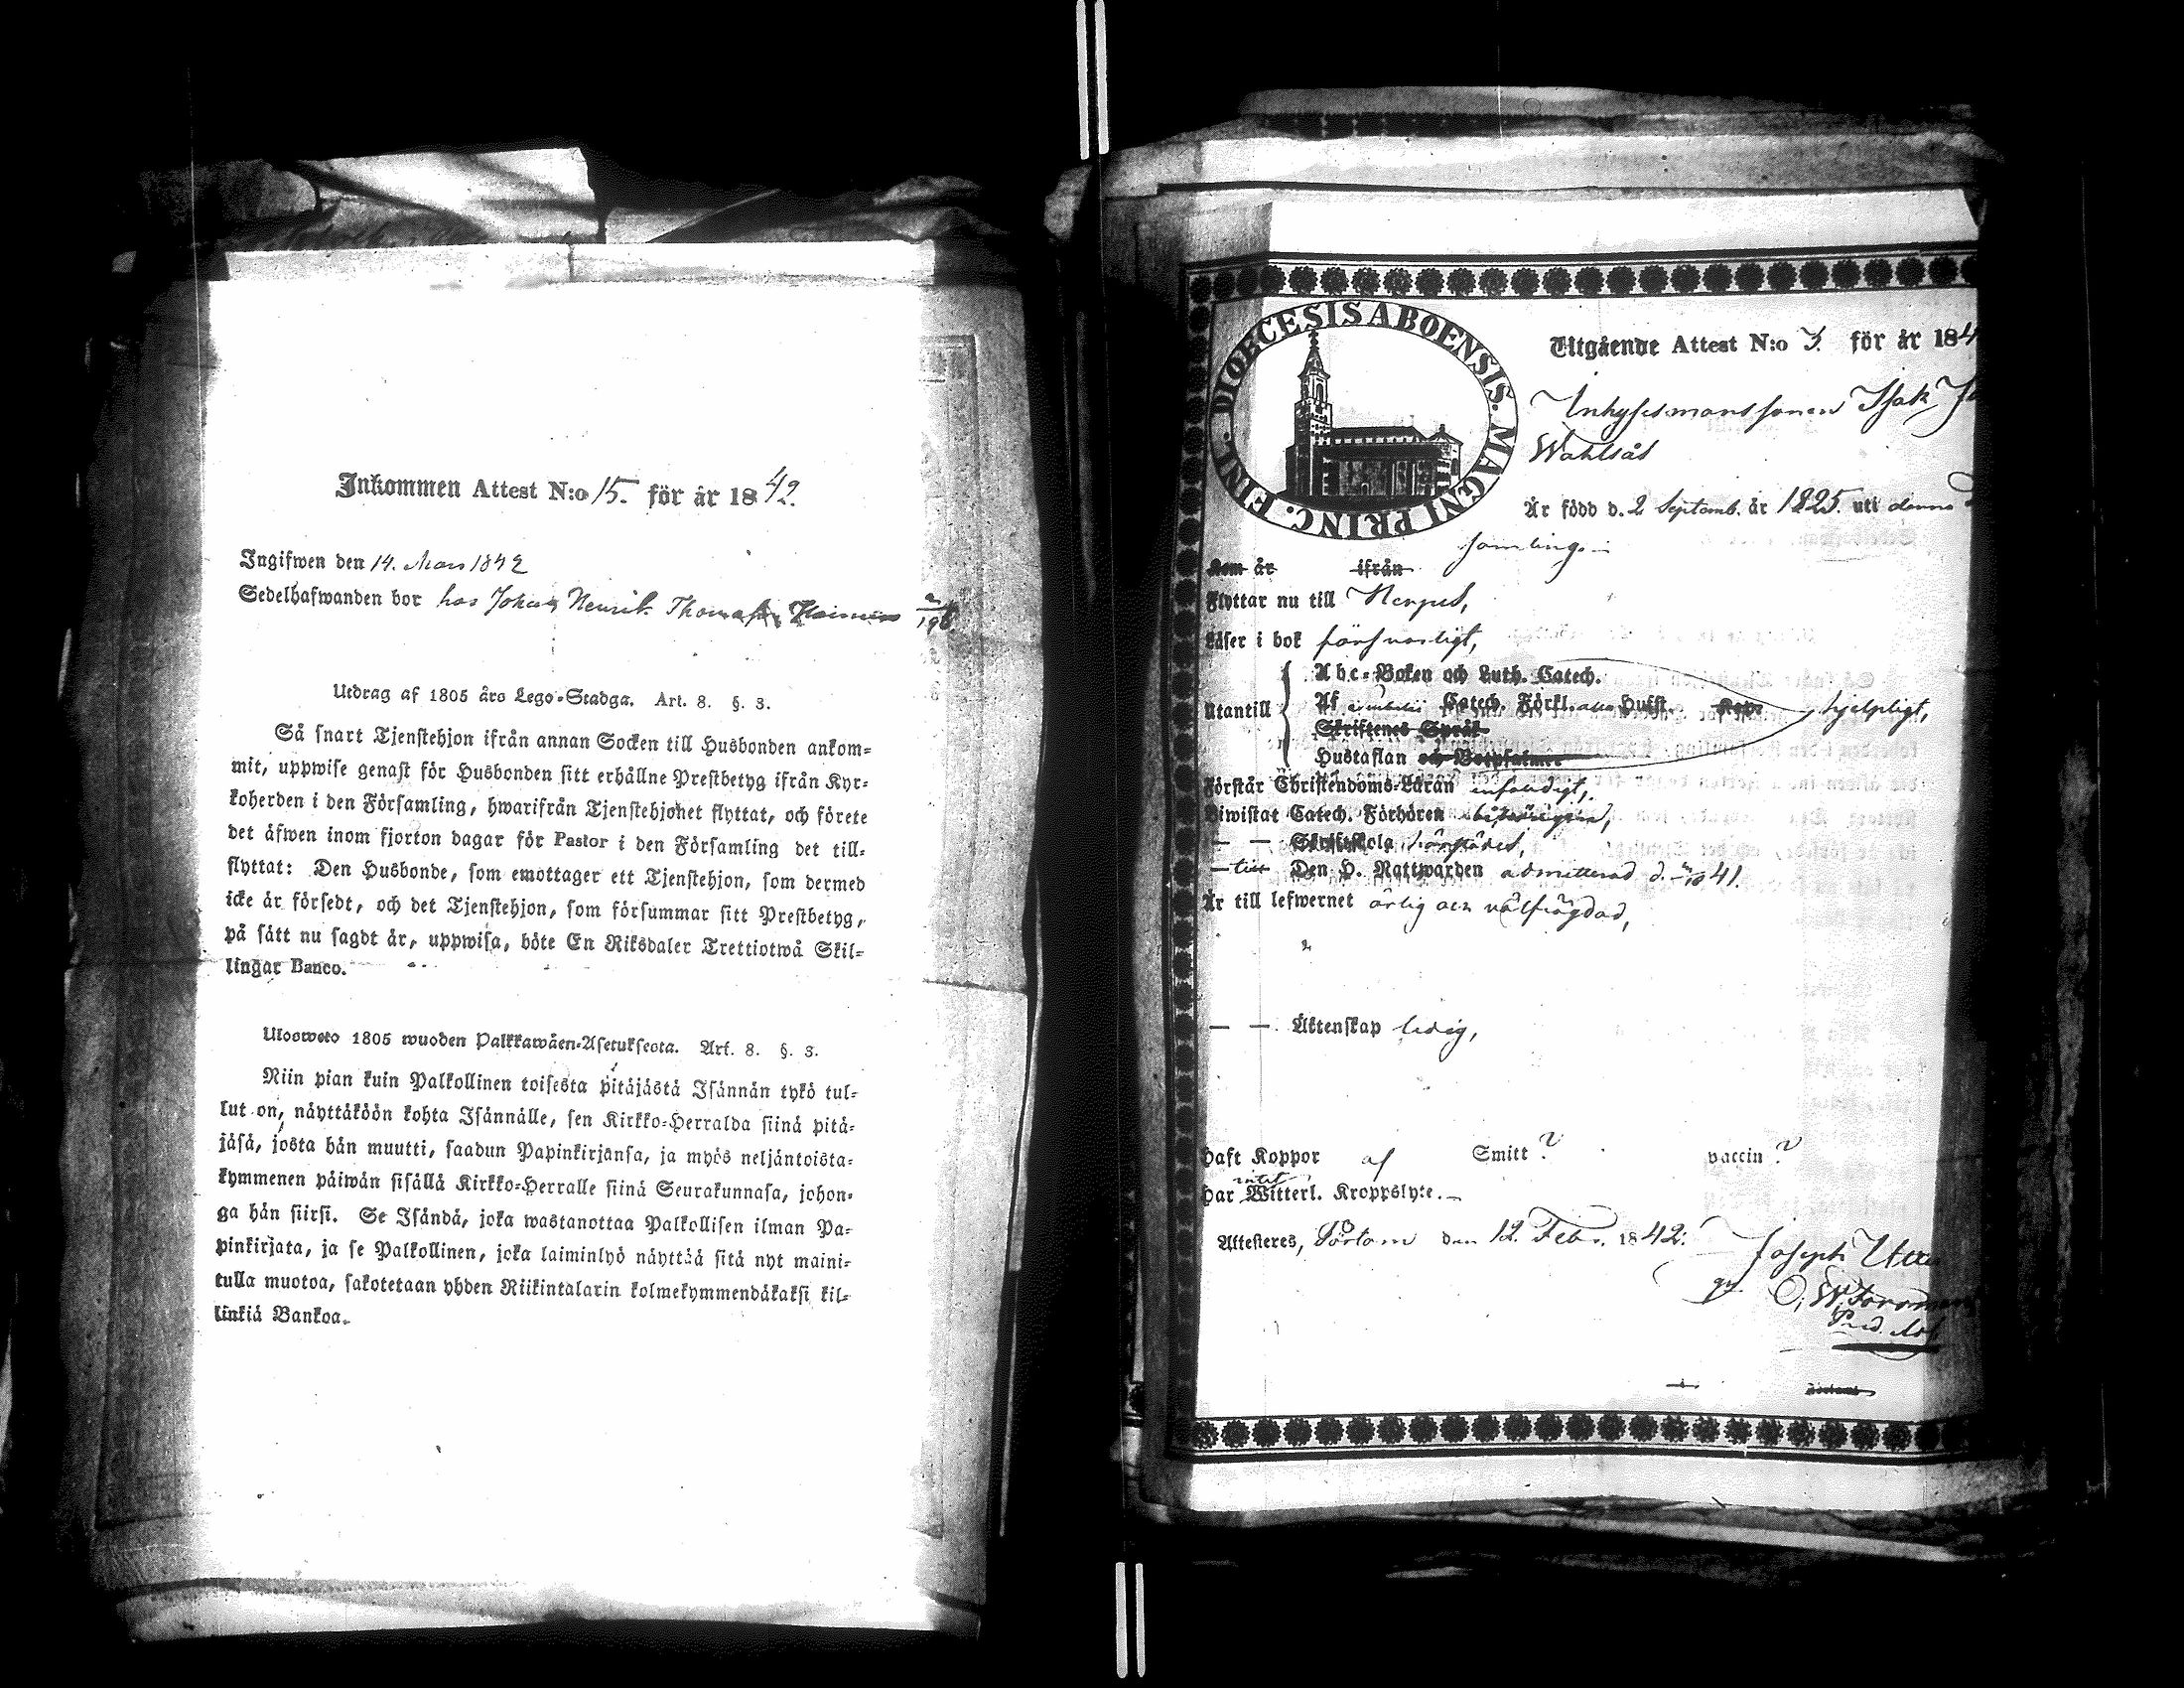 Inkommen Attest N:o 15. för år 1842.
Ingifwen den 14. Mars 1842
Sedelhafwanden bor hos Johan Henrik Thomasson
Utdrag af 1805 års Lego-Stadga. Art. 8. §. 3.
Så snart Tjenstehjon ifrån annan Socken till Husbonden ankom-
mit, uppwise genast för Husbonden sitt erhållne Prestbetyg ifrån Kyr-
koherden i den Församling, hwarifrån Tjenstehjonet flyttat, och förete
det äfwen inom fjorton dagar för Pastor i den Församling det till-
flyttat: Den Husbonde, som emottager ett Tjenstehjon, som dermed
icke är försedt, och det Tjenstehjon, som försummar sitt Prestbetyg,
på sätt nu sagdt är, uppwisa, böte En Riksdaler Trettiotwå Skil-
lingar Banco.
Ulosweto 1805 wuoden Palkkawäen-Asetuksesta. Art. 8. §. 3.
Niin pian kuin Palkollinen toisesta pitäjästä Isännän tykö tul-
lut on, näyttäköön kohta Isännälle, sen Kirkko-Herralda siinä pitä-
jäsä, josta hän muutti, saadun Papinkirjansa, ja myös neljäntoista-
kymmenen päiwän sisällä Kirkko-Herralle siinä Seurakunnasa, johon-
ga hän siirsi. Se Isändä, joka wastanottaa Palkollisen ilman Pa-
pinkirjata, ja se Palkollinen, joka laiminlyö näyttää sitä nyt maini-
tulla muotoa, sakotetaan yhden Riikintalarin kolmekymmendäkaksi kil-
linkiä Bankoa.
DIOECESIS ABOENSIS. MAGNI PRINC. FINL.
Utgående Attest N:o 3. för år 184
Inhysesmans sonen Isak
Wahlsås
Är född d. 2 Septemb. år 1825. uti denna
samling.
Kom år ifrån
Flyttar nu till Nerpes,
Läser i bok försvarligt,
Utantill
Abc-Boken och Luth. Catech.
Af Catech. Förkl. Hufst. hjelpligt,
Skriftenes Språk
Hustaflan och Botpsalmer
Förstår Christendoms-Läran enfaldigt,
Biwistat Catech. Förhören
— — Skriftskola härstädes,
— till Den H. Nattwarden admitterad d. 41.
Är till lefwernet ärlig och välfrägdad,
— — Äktenskap ledig,
Haft Koppor af Smitt ? vaccin ?
intet
har Witterl. Kroppslyte.
Attesteres, Pörtom den 12. Febr. 1842.
Joseph
O. W. Forsman